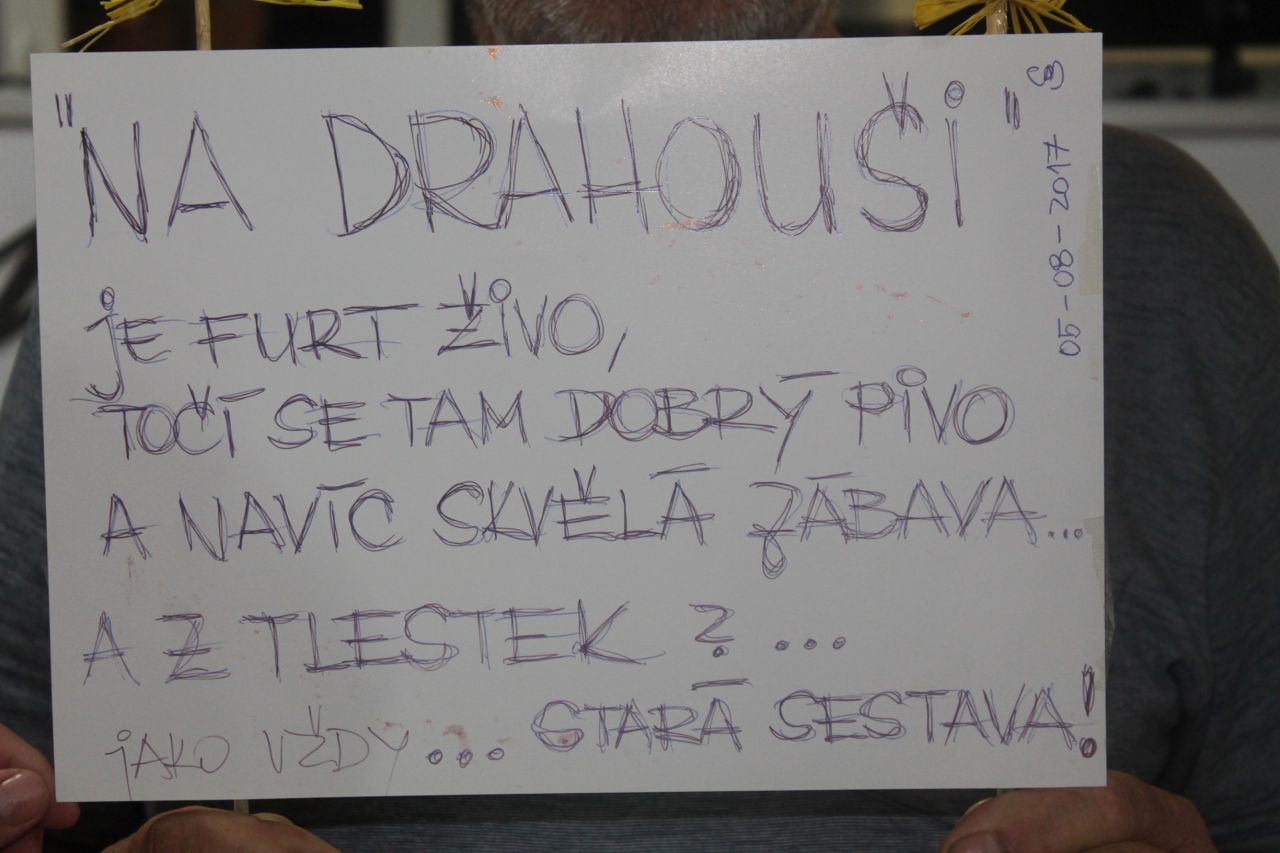 "NA DRAHOUŠi"
jE FURT ŽiVO,
TOČÍ SE TAM DOBRÝ PiVO
A NAVÍC SKVĚLÁ ZÁBAVA...
A Z TLESTEK ? ...
jAKO VŽDY ... STARÁ SESTAVA!
05-08-2017